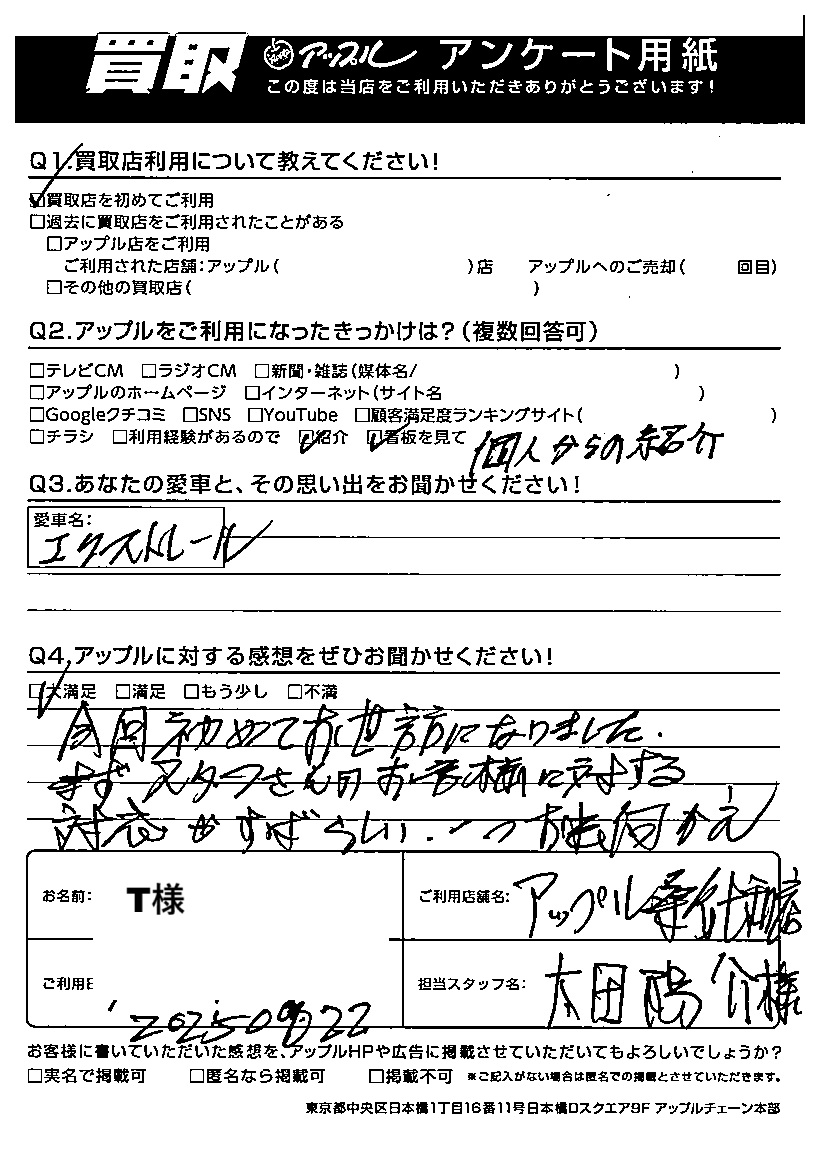 買取 アップル アンケート用紙
この度は当店をご利用いただきありがとうございます!
Q1.買取店利用について教えてください!
☑買取店を初めてご利用
□過去に買取店をご利用されたことがある
□アップル店をご利用
ご利用された店舗:アップル( )店 アップルへのご売却( 回目)
□その他の買取店( )
Q2.アップルをご利用になったきっかけは?(複数回答可)
□テレビCM □ラジオCM □新聞・雑誌(媒体名/ )
□アップルのホームページ □インターネット(サイト名 )
□Googleクチコミ □SNS □YouTube □顧客満足度ランキングサイト( )
□チラシ □利用経験があるので ☑紹介 ☑看板を見て 個人からの紹介
Q3.あなたの愛車と、その思い出をお聞かせください!
愛車名:
エクストレール
Q4.アップルに対する感想をぜひお聞かせください!
☑大満足 □満足 □もう少し □不満
今回初めてお世話になりました.
まずスタッフさんのお客様に対する
対応がすばらしい.一つお伺え
お名前: T様 ご利用店舗名: アップル 店
ご利用日 '2025 09/22 担当スタッフ名: 太田陽介様
お客様に書いていただいた感想を、アップルHPや広告に掲載させていただいてもよろしいでしょうか?
□実名で掲載可 □匿名なら掲載可 □掲載不可 ※ご記入がない場合は匿名での掲載とさせていただきます。
東京都中央区日本橋1丁目16番11号日本橋ロスクエア9F アップルチェーン本部